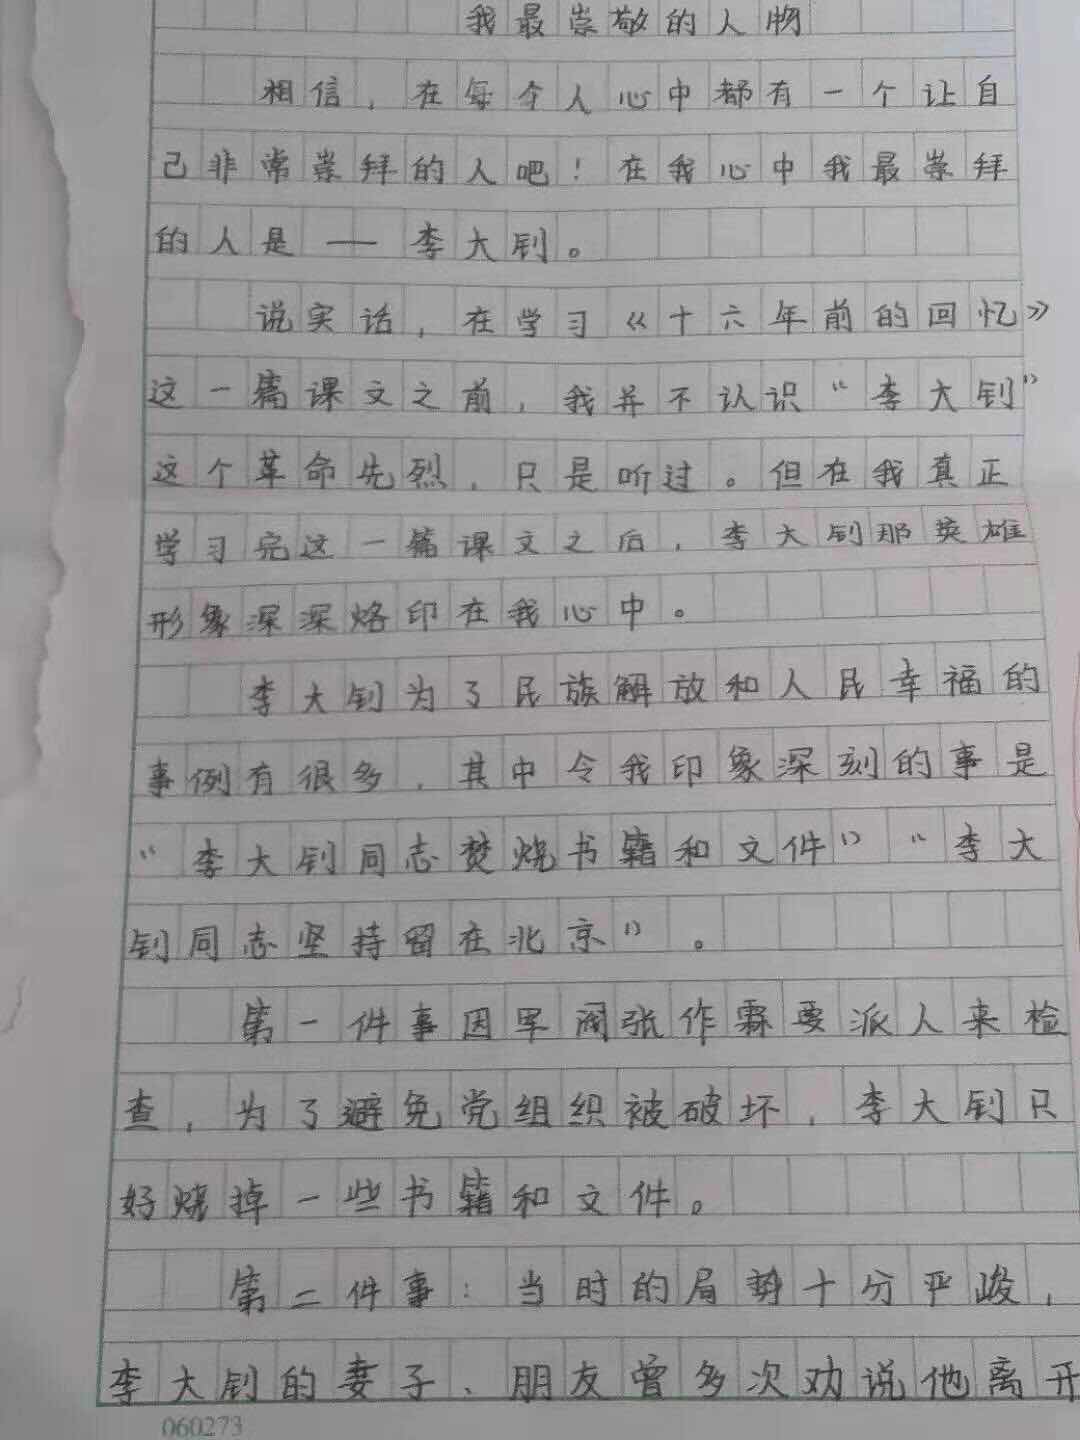 我最崇敬的人物
相信，在每个人心中都有一个让自
己非常崇拜的人吧！在我心中我最崇拜
的人是——李大钊。
说实话，在学习《十六年前的回忆》
这一篇课文之前，我并不认识“李大钊”
这个革命先烈，只是听过。但在我真正
学习完这一篇课文之后，李大钊那英雄
形象深深烙印在我心中。
李大钊为了民族解放和人民幸福的
事例有很多，其中令我印象深刻的事是
“李大钊同志焚烧书籍和文件”“李大
钊同志坚持留在北京”。
第一件事因军阀张作霖要派人来检
查，为了避免党组织被破坏，李大钊只
好烧掉一些书籍和文件。
第二件事：当时的局势十分严峻，
李大钊的妻子、朋友曾多次劝说他离开
060273